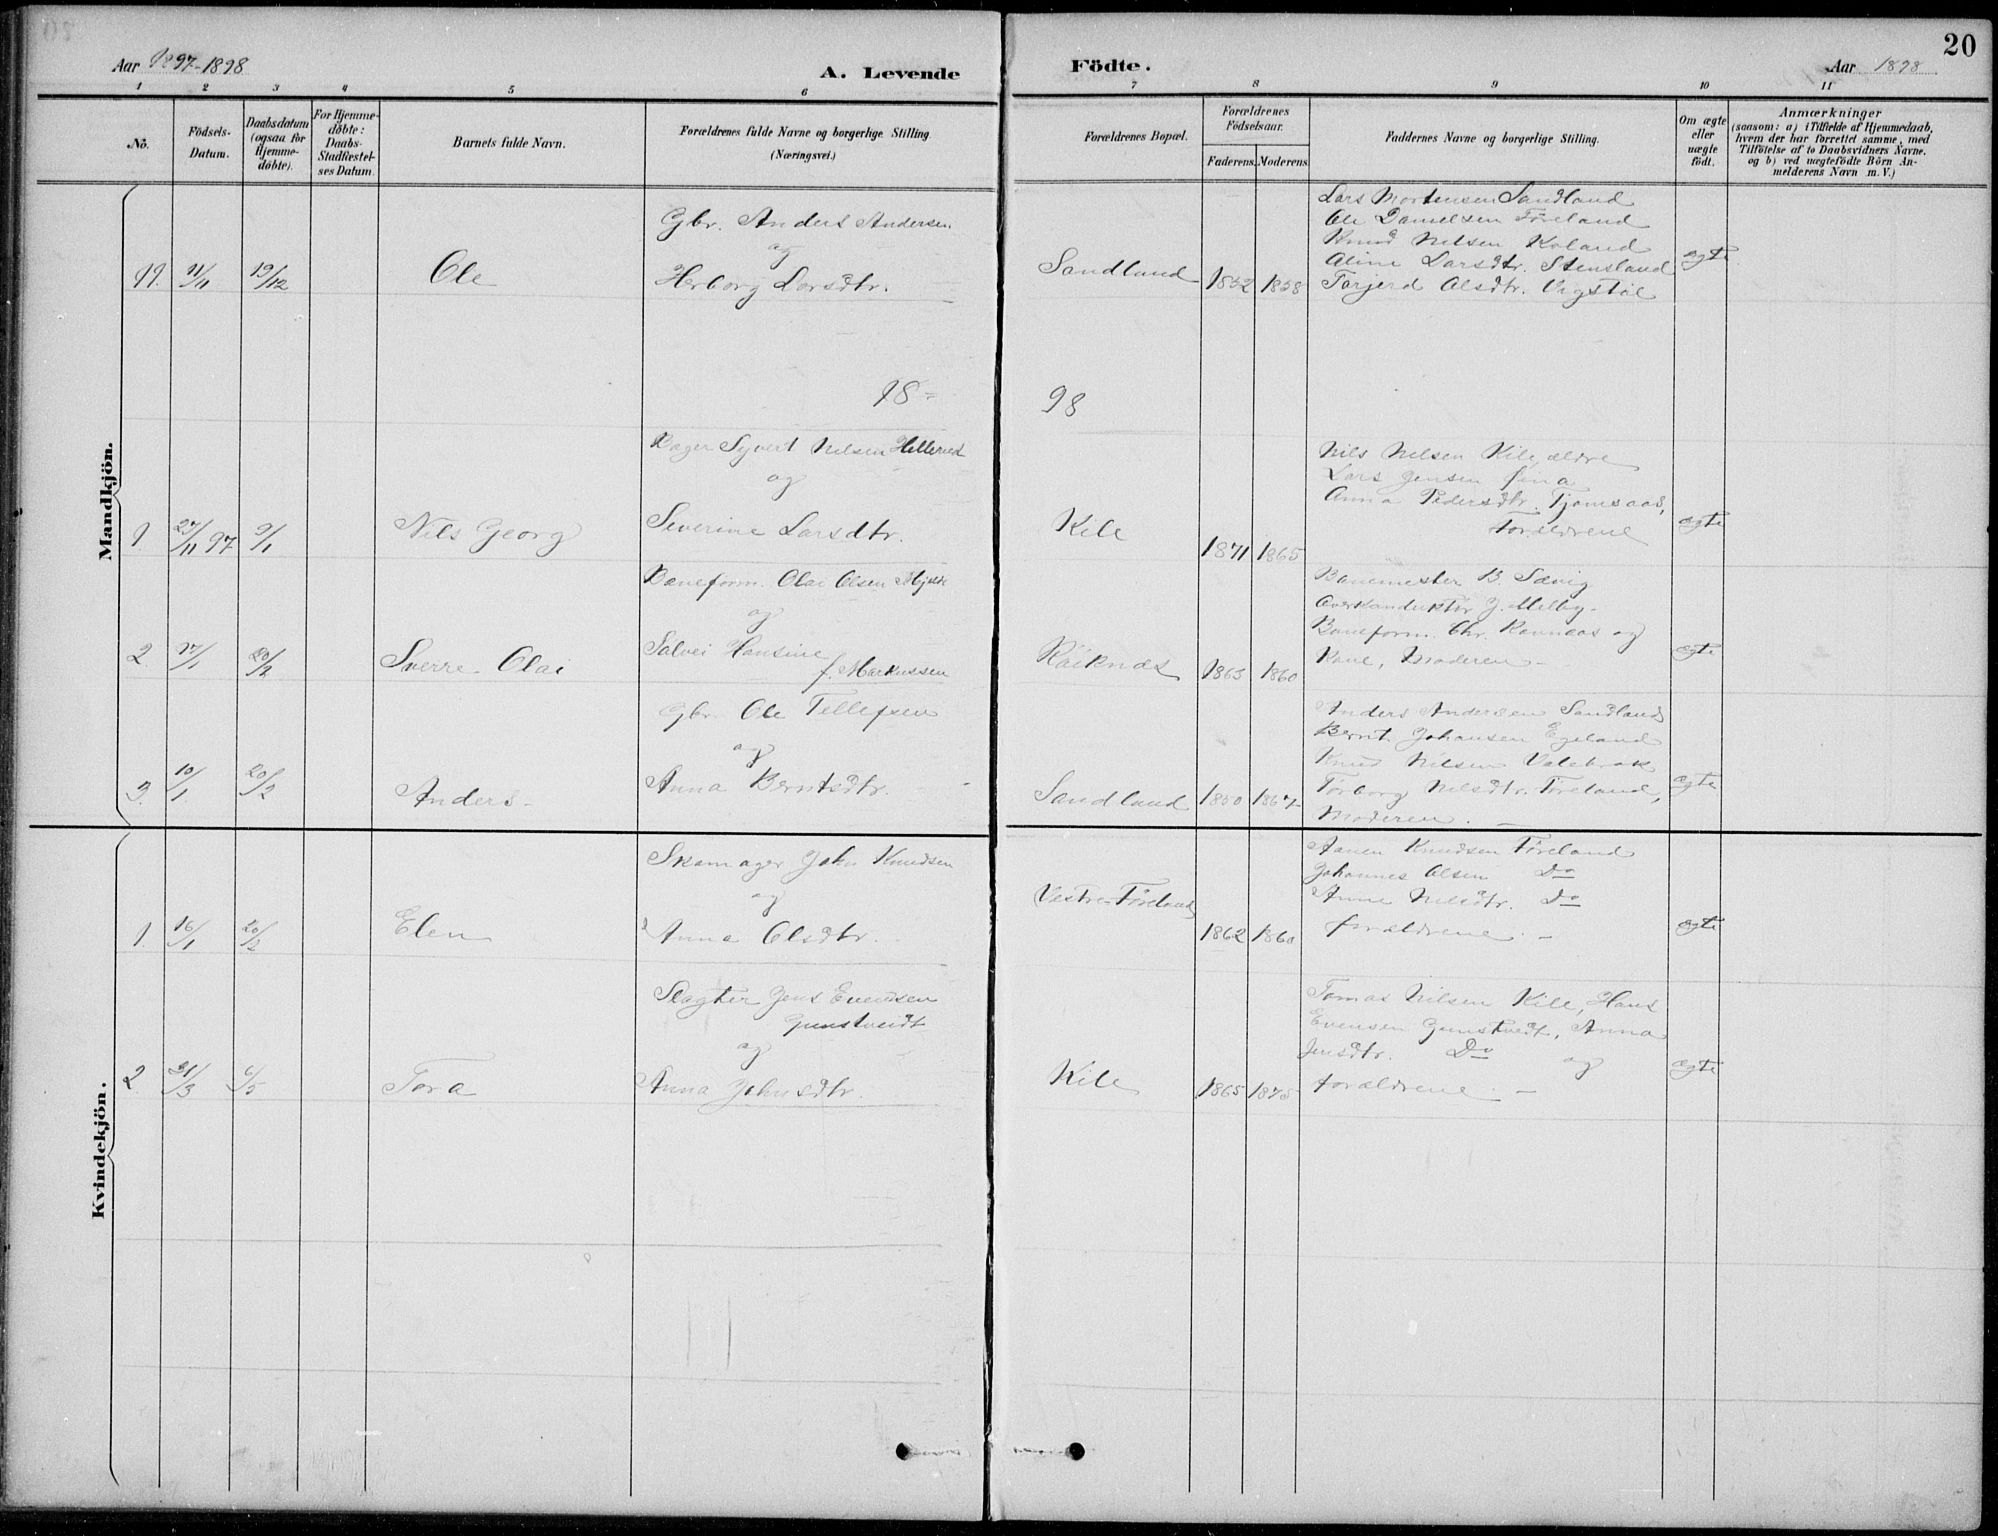 20
Aar 1897-1898
A. Levende
Födte.
Aar 1898
1 2 3 4 5 6 7 8 9 10 11
No.
Födsels-
Datum.
Daabsdatum
(ogsaa for
Hjemme-
døbte).
For Hjemme-
døbte:
Daabs-
Stadfæstel-
ses Datum.
Barnets fulde Navn.
Forældrenes fulde Navne og borgerlige Stilling.
(Næringsvei.)
Forældrenes Bopæl.
Forældrenes
Födselsaar.
Faderens. Moderens.
Faddernes Navne og borgerlige Stilling.
Om ægte
eller
uægte
födt.
Anmærkninger
(saasom: a) i Tilfælde af Hjemmedaab,
hvem der har forrettet samme, med
Tilföielse af to Daabsvidners Navne.
og b) ved uægtefödte Börn An-
melderens Navn m. V.)
Mandkjön.
11. 11/11 19/12
Ole
Gbr. Anders Andersen
og
Herborg Larsdtr.
Sandland
1852 1858
Lars Mortensen Sandland
Ole Danielsen Føreland
Knud Nilsen Koland
Aline Larsdtr. Stensland
Torjerd Olsdtr. Vrgstöl
ægte
18=
98
1. 27/11 97 9/1
Nils Georg
Bager Syvert Nilsen Hellerud
og
Severine Larsdtr.
Kile
1871 1865
Nils Nilsen Kile, ældre
Lars Jensen
Anna Pedersdtr. Tjomsaas,
forældrene
ægte
2. 17/1 20/2
Sverre Olai
Baneform. Olai Olsen
og
Salvei Hansine
f. Markussen
Röiknes
1863 1860
Banemester B. Sævig
Overkonduktör J. Melby-
Baneform. Chr. Ravnaas og
Kone, Moderen -
ægte
3. 10/1 20/2
Anders-
Gbr. Ole Tellefsen
og
Anna Berntsdtr.
Sandland
1850 1867
Anders Andersen Sandland
Bernt Johansen Egeland
Knud Nilsen Valebrok
Torborg Nilsdtr. Føreland,
Moderen. -
ægte
Kvindekjön.
1. 16/1 20/2
Elen
Skomager John Knudsen
og
Anna Olsdtr.
Vestre-Føreland
1862 1860
Aanen Knudsen Føreland
Johannes Olsen Do
Anne Nilsdtr. Do
forældrene. -
ægte
2 31/3 6/5
Tora
Slagter Jens Evensen
Gunstveidt
og
Anna Johnsdtr.
Kile
1865 1875
Tomas Nilsen Kile, Hans
Evensen Gunstvedt, Anna
Jensdtr. Do og
forældrene. -
ægte